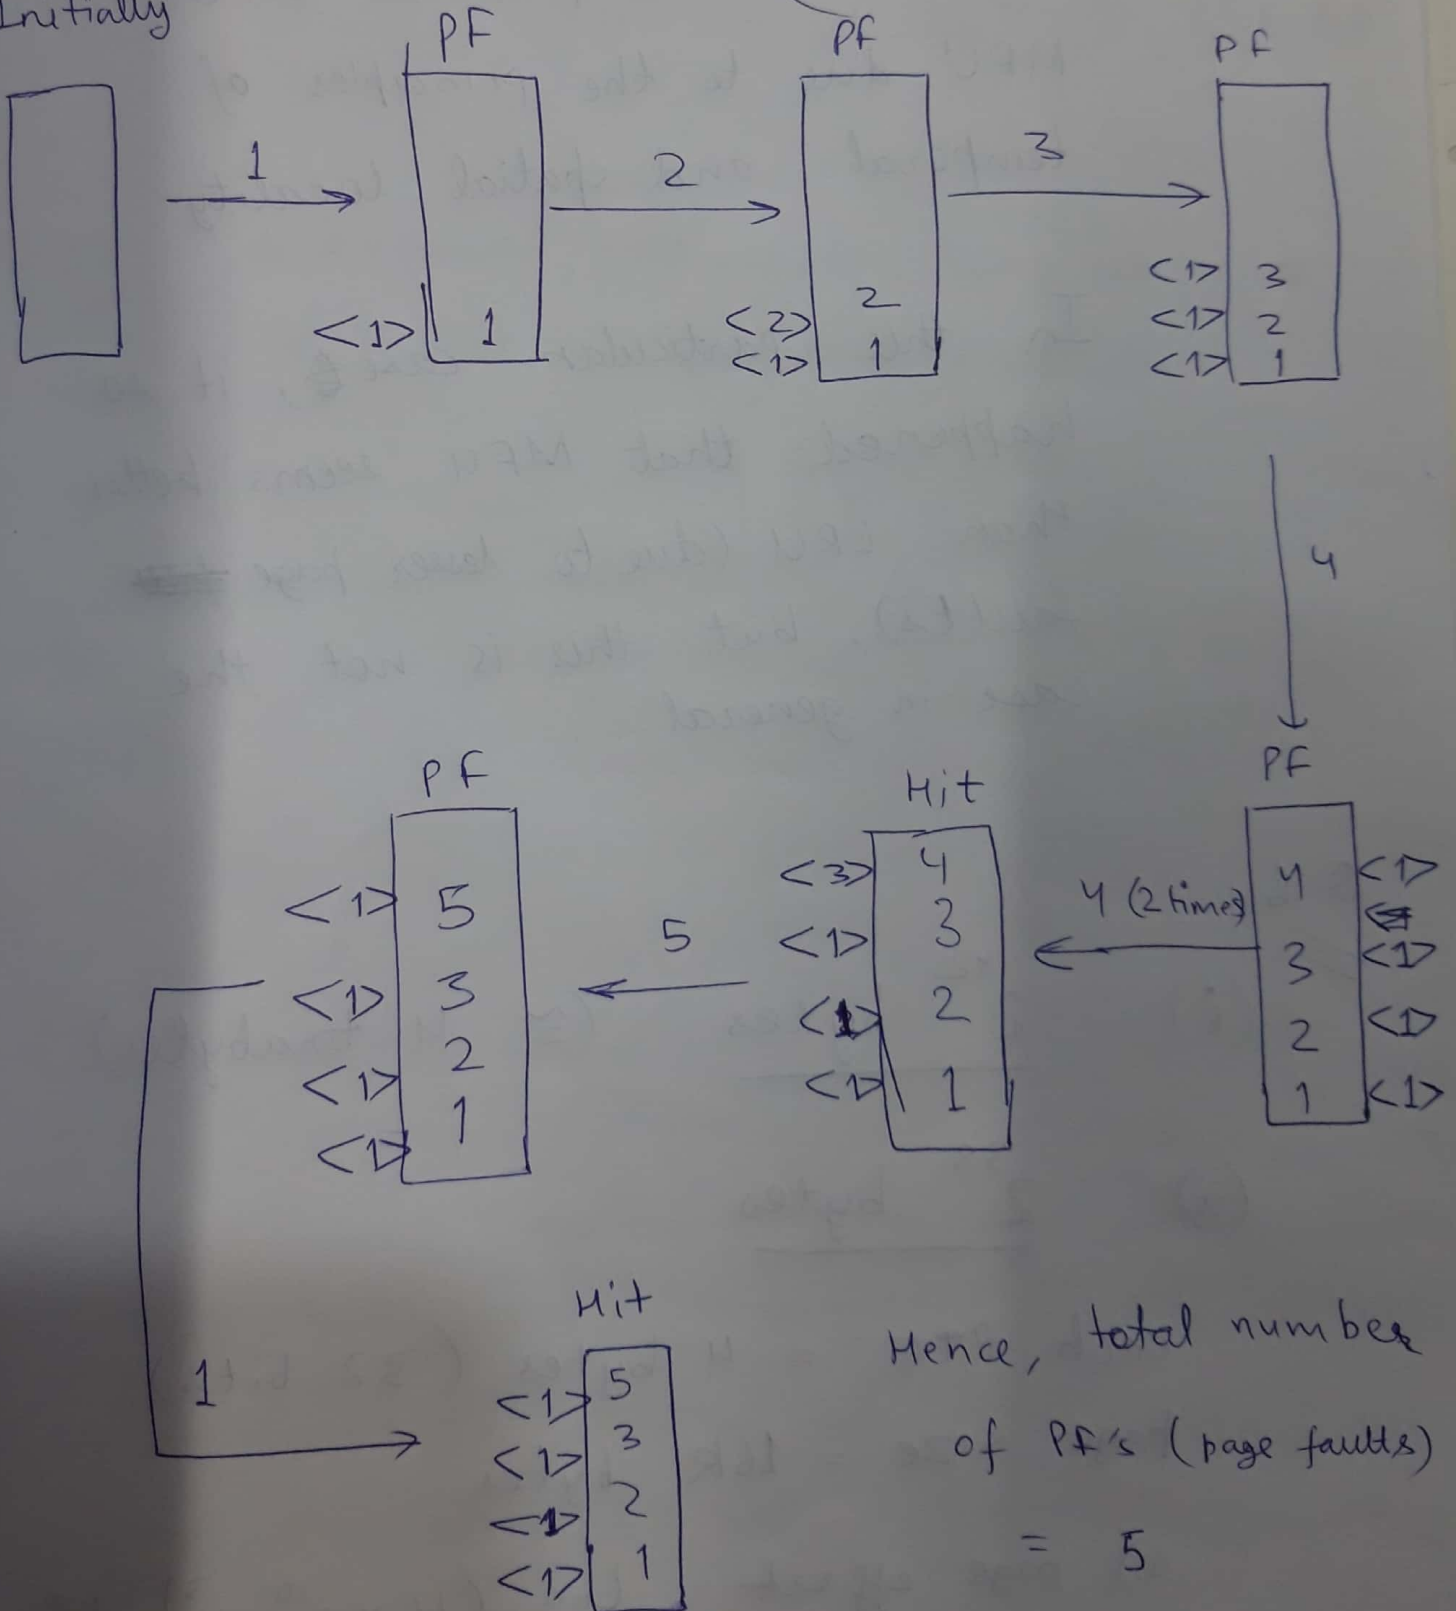 Initially
PF
PF
PF
1
2
3
<1> 1
<2> 2
<1> 1
<1> 3
<1> 2
<1> 1
4
PF
4 <1>
3 <1>
2 <1>
1 <1>
4 (2 times)
Hit
<3> 4
<1> 3
<1> 2
<1> 1
5
PF
<1> 5
<1> 3
<1> 2
<1> 1
1
Hit
<1> 5
<1> 3
<1> 2
<1> 1
Hence, total number
of PF's (page faults)
= 5